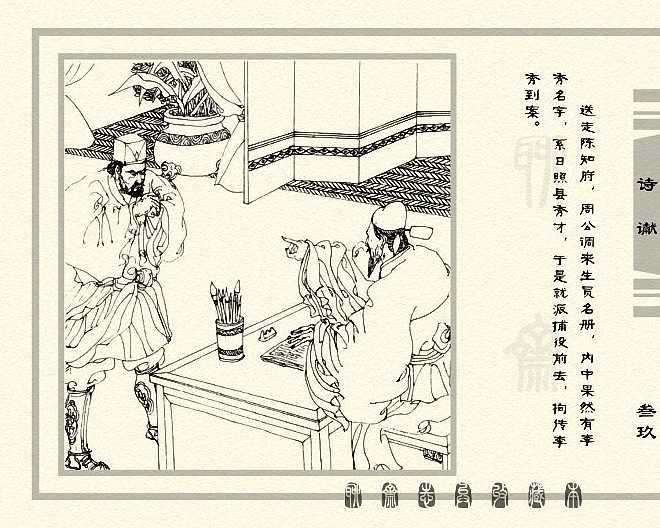 送走陈知府，周公调来生员名册，内中果然有李
秀名字，系日照县秀才，于是就派捕役前去，拘传李
秀到案。
诗谳
叁玖
聊斋志异收藏本